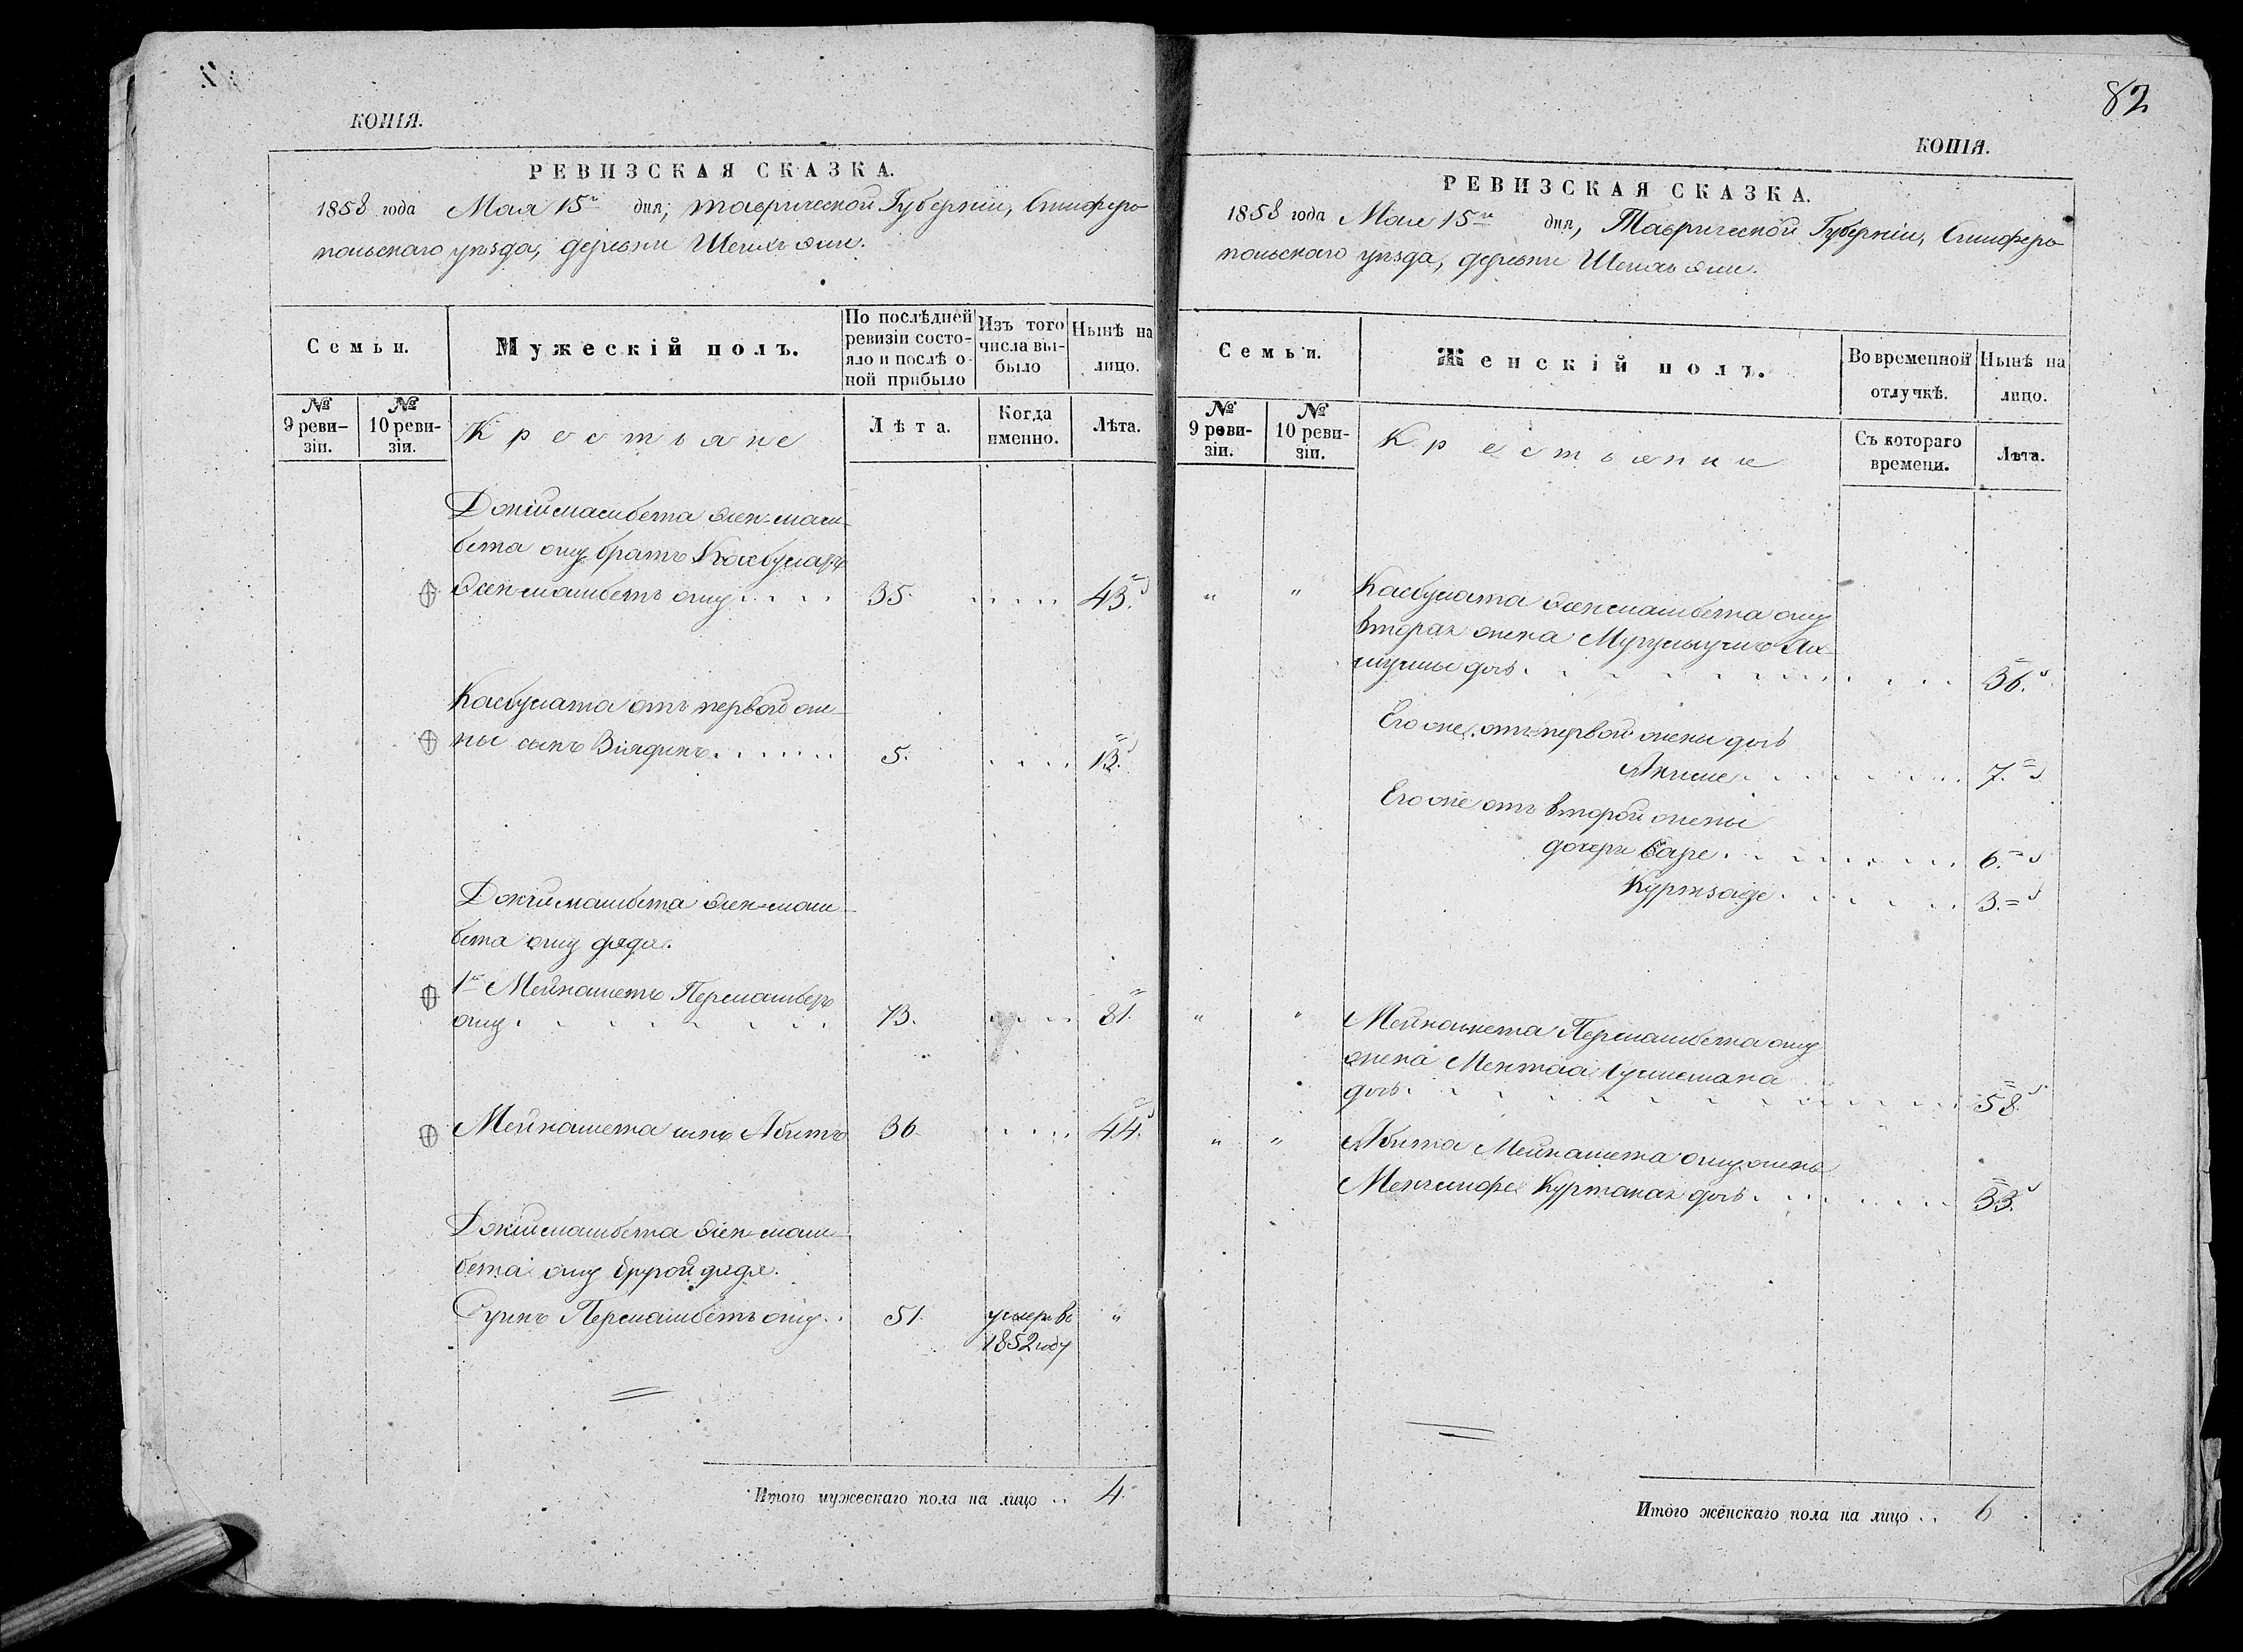 КОПІЯ.
РЕВИЗСКАЯ СКАЗКА.
1858 года Мая 15го дня, Таврической Губерніи, Симферо-
польскаго уѣзда, деревни Шейхъ Эли.
Семьи.
Мужескій полъ.
По послѣдней
ревизіи состо-
яло и послѣ о-
ной прибыло
Изъ того
числа вы-
было
Нынѣ на
лицо.
№
9 реви-
зіи.
№
10 реви-
зіи.
Крестьяне
Лѣта.
Когда
именно.
Лѣта.
бета оглу братъ Касбулатъ
оглу . . . . 35. . . . . 43.
Касбулата отъ первой же-
ны сынъ Зіядинъ . . . . . 5. . . . . 13.
бета оглу дядя.
1й Мейнаметъ Пермамбетъ
оглу . . . . . . . 73. . . . . 81.
Мейнамета сынъ Абитъ 36 . . . . 44.
бета оглу другой дядя.
Пермамбетъ оглу . . 51. умеръ въ "
1852 году
Итого мужескаго пола на лицо . . 4.
82
КОПІЯ.
РЕВИЗСКАЯ СКАЗКА.
1858 года Мая 15го дня, Таврической Губерніи, Симферо-
польскаго уѣзда, деревни Шейхъ Эли.
Семьи.
Женскій полъ.
Во временной
отлучкѣ.
Нынѣ на
лицо.
№
9 реви-
зіи.
№
10 реви-
зіи.
Крестьянки
Съ котораго
времени.
Лѣта.
" " Касбулата оглу
вторая жена
дочь . . . . . . . 36.
Его же, отъ первой жены дочь
. . . . . . 7.
Его же отъ второй жены
дочери Саре . . . . . . . 6.
Куртзаде . . . . . . 3.
" " Мейнамета Пермамбета оглу
жена Ментаа Сулеймана
дочь . . . . . . . . . 58.
" " Абита Мейнамета оглу жена
дочь . . . . . . 33.
Итого женскаго пола на лицо . . 6.